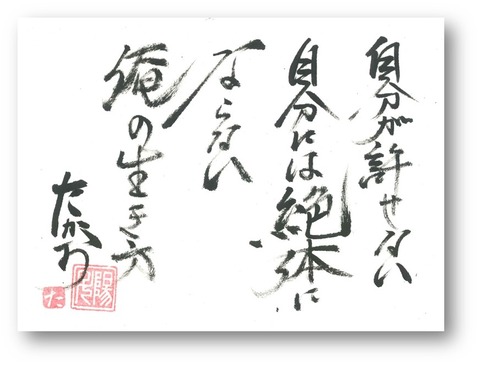 自分が許せない
自分には絶体に
ならない
俺の生き方